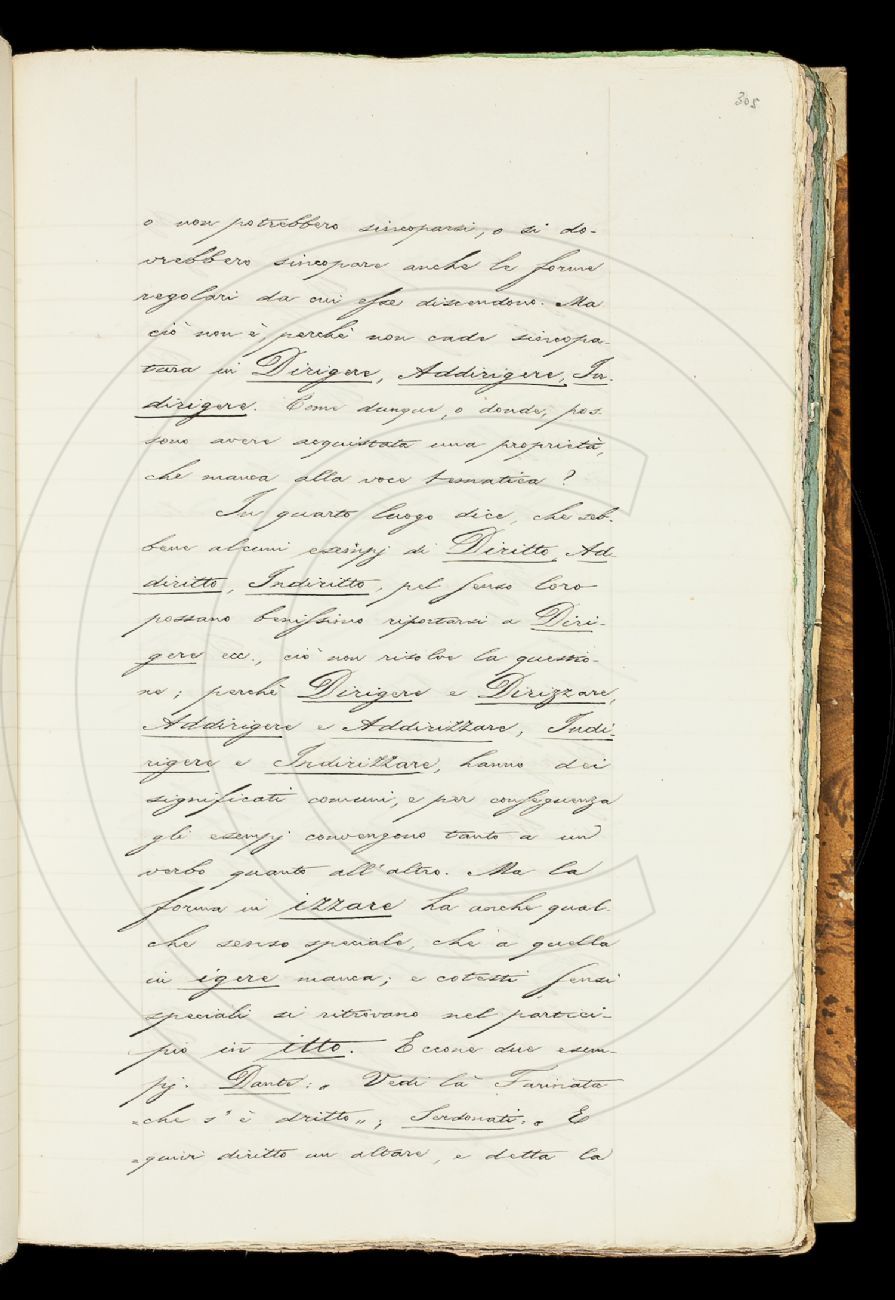 305
o non potrebbero sincoparsi, o si do-
vrebbero sincopare anche le forme
regolari da cui esse discendono. Ma
ciò non è, perchè non cade sincopa-
tura in Dirigere, Addirigere, In-
dirigere. Come dunque, o donde, pos-
sono avere acquistata una proprietà,
che manca alla voce tematica?
In quarto luogo dice, che seb-
bene alcuni esempj di Diritto, Ad-
diritto, Indiritto, pel senso loro
possano benissimo riportarsi a Diri-
gere ecc., ciò non risolve la questio-
ne; perchè Dirigere e Dirizzare,
Addirigere e Addirizzare, Indi-
rigere e Indirizzare, hanno dei
significati comuni, e per conseguenza
gli esempj convengono tanto a un
verbo quanto all'altro. Ma la
forma in izzare ha anche qual-
che senso speciale, che a quella
in igere manca; e cotesti sensi
speciali si ritrovano nel partici-
pio in itto. Eccone due esem-
pj. Dante: „ Vedi là Farinata
„che s'è dritto„; Serdonati: „ E
„quivi diritto un altare, e detta la